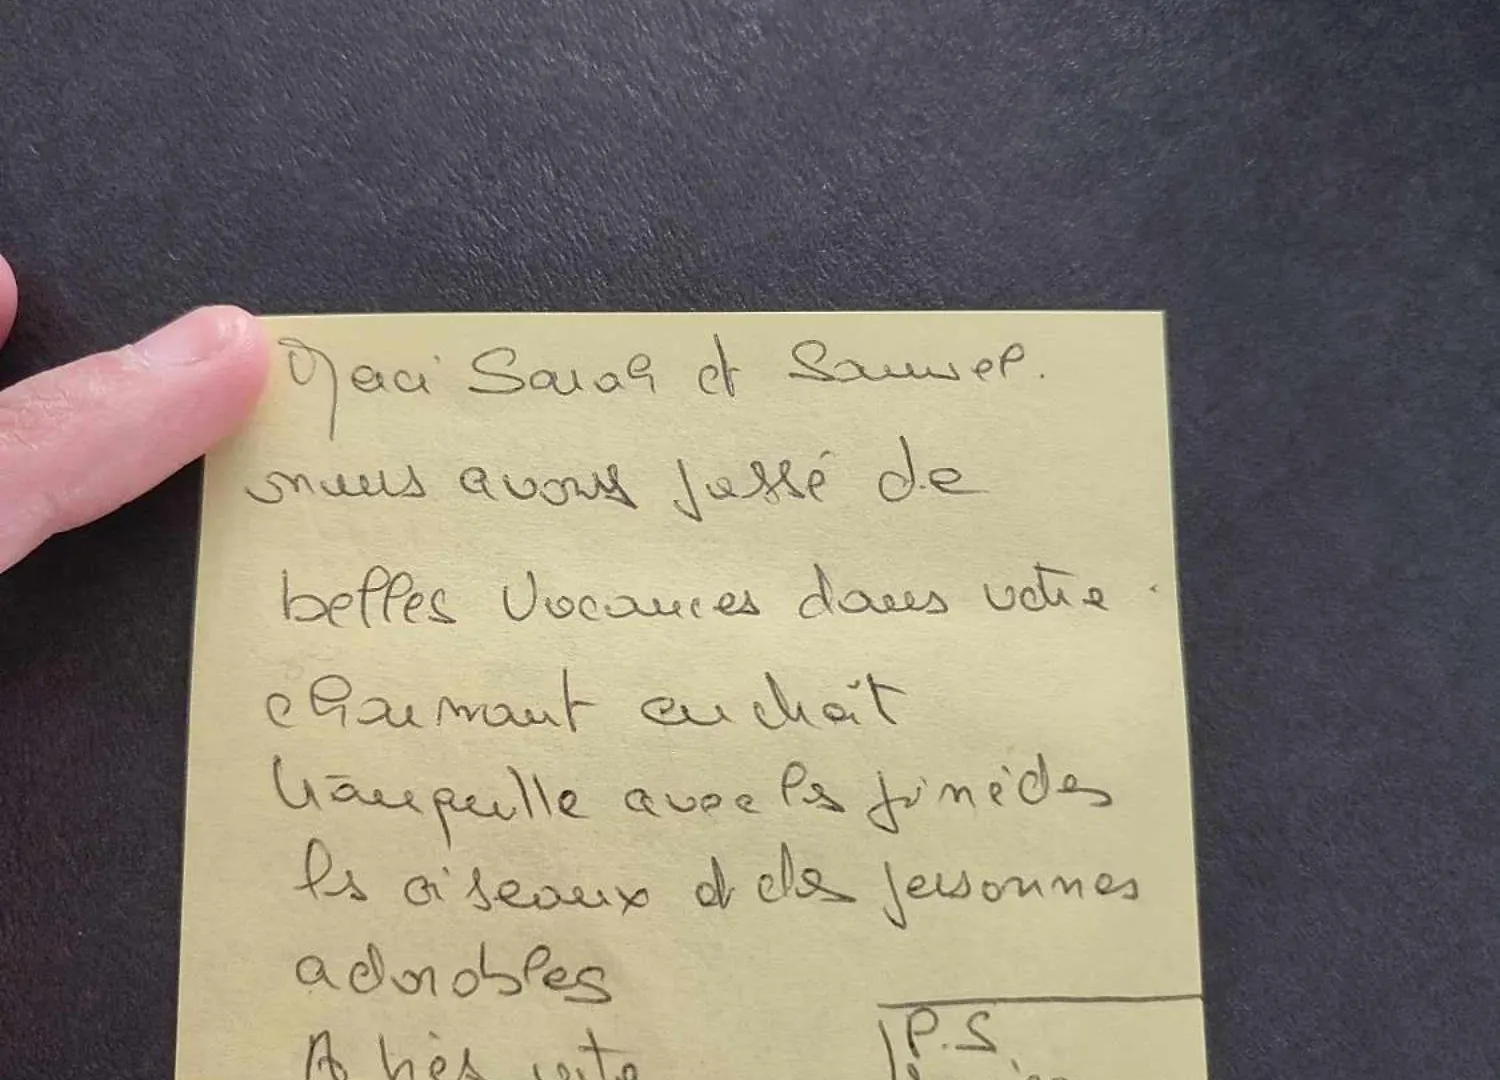 Merci Sarah et Samuel.
nous avons passé de
belles vacances dans votre
charmant endroit
tranquille avec les pinèdes
les oiseaux et des personnes
adorables
A très vite
P.S.